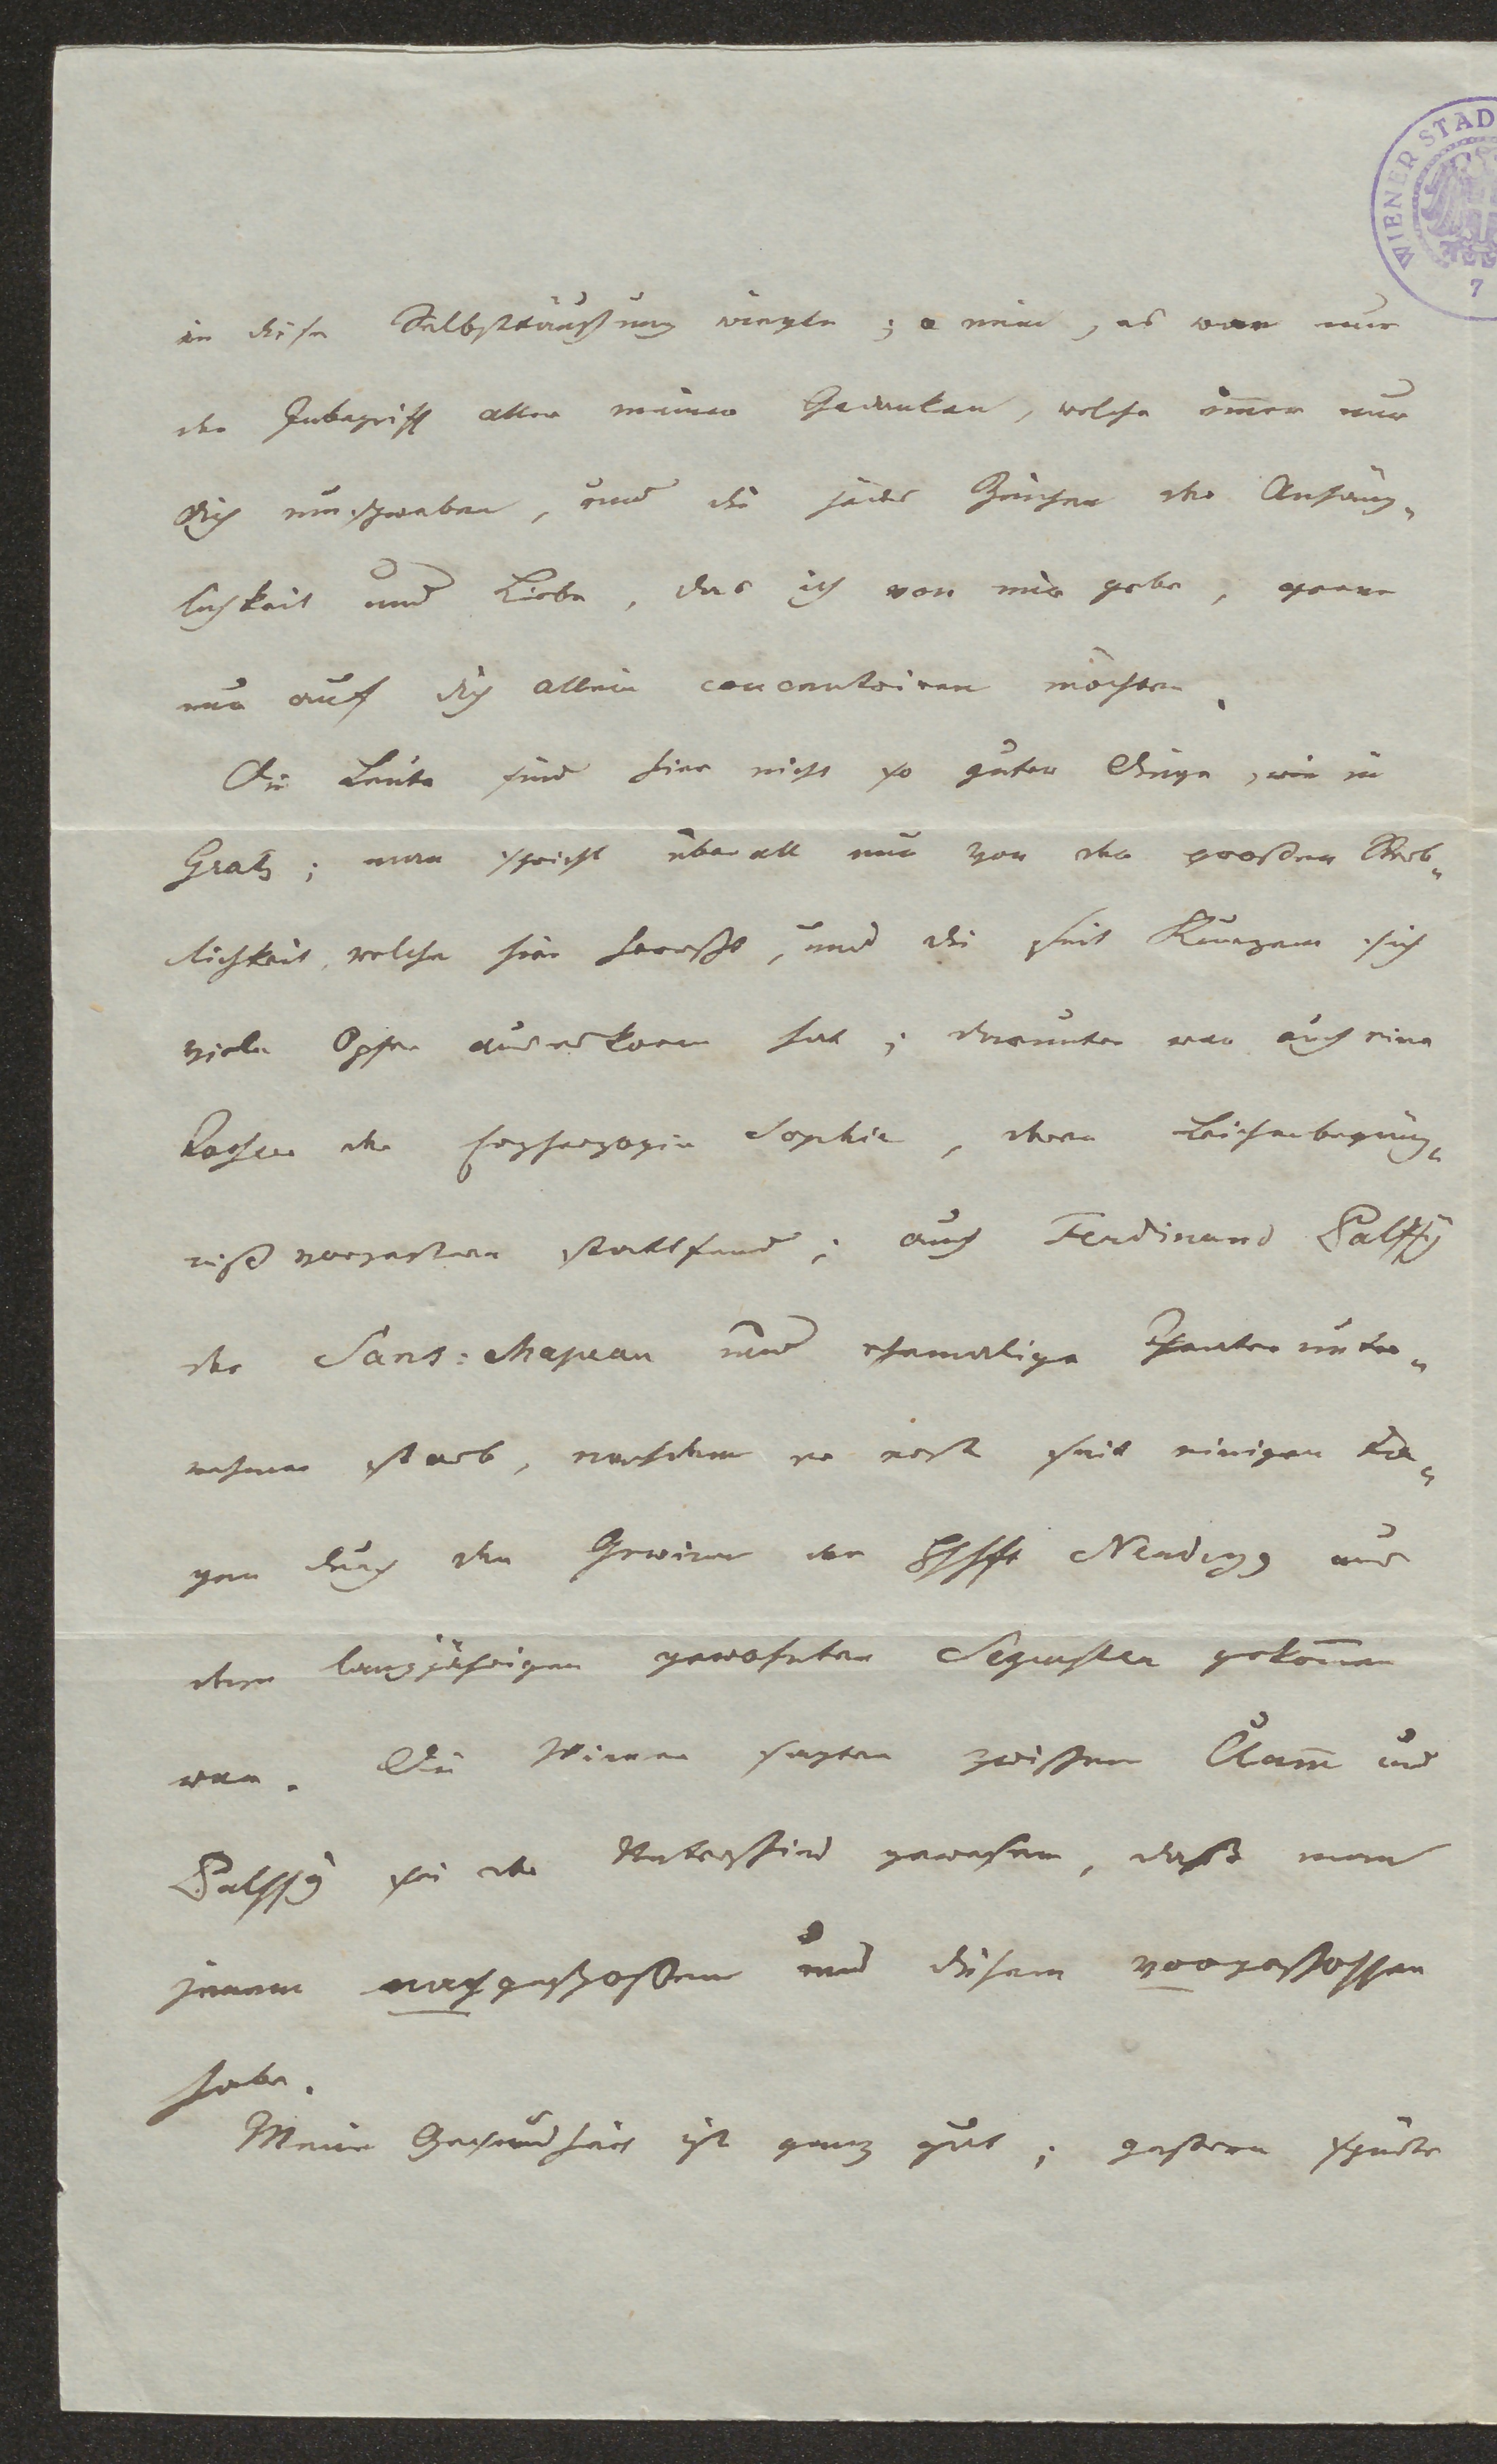 in diese Selbsttäuschung wiegte; o nein, es war nur
der Inbegriff aller meiner Gedanken, welche im̅er nur
dich umschweben, und die jedes Zeichen der Anhäng„
lichkeit und Liebe, das ich von mir gebe, gerne
nur auf dich allein concentriren möchten.
Die Leute sind hier nicht so guter Dinge, wie in
Gratz; man spricht überall nur von der großen Sterb„
lichkeit, welche hier herrscht, und die seit Kurzem sich
viele Opfer auserkoren hat; darunter war auch eine
Tochter der Erzherzogin Sophie, deren Leichenbegäng„
niß vorgestern stattfand; auch Ferdinand Palffÿ
der Sans=chapeau und ehemalige Theater unter„
nehmer starb, nachdem er erst seit einigen Ta„
gen durch den Gewinn der Hschft Neudegg aus
dem langjährigen gewohnten Sequester gekom̅en
war. Die Wiener sagten zwischen Clam̅ und
Palffÿ sei der Unterschied gewesen, daß man
jenem nachgeschossen und diesem vorgeschossen
habe.
Meine Gesundheit ist ganz gut; gestern speiste
WIENER STAD
7